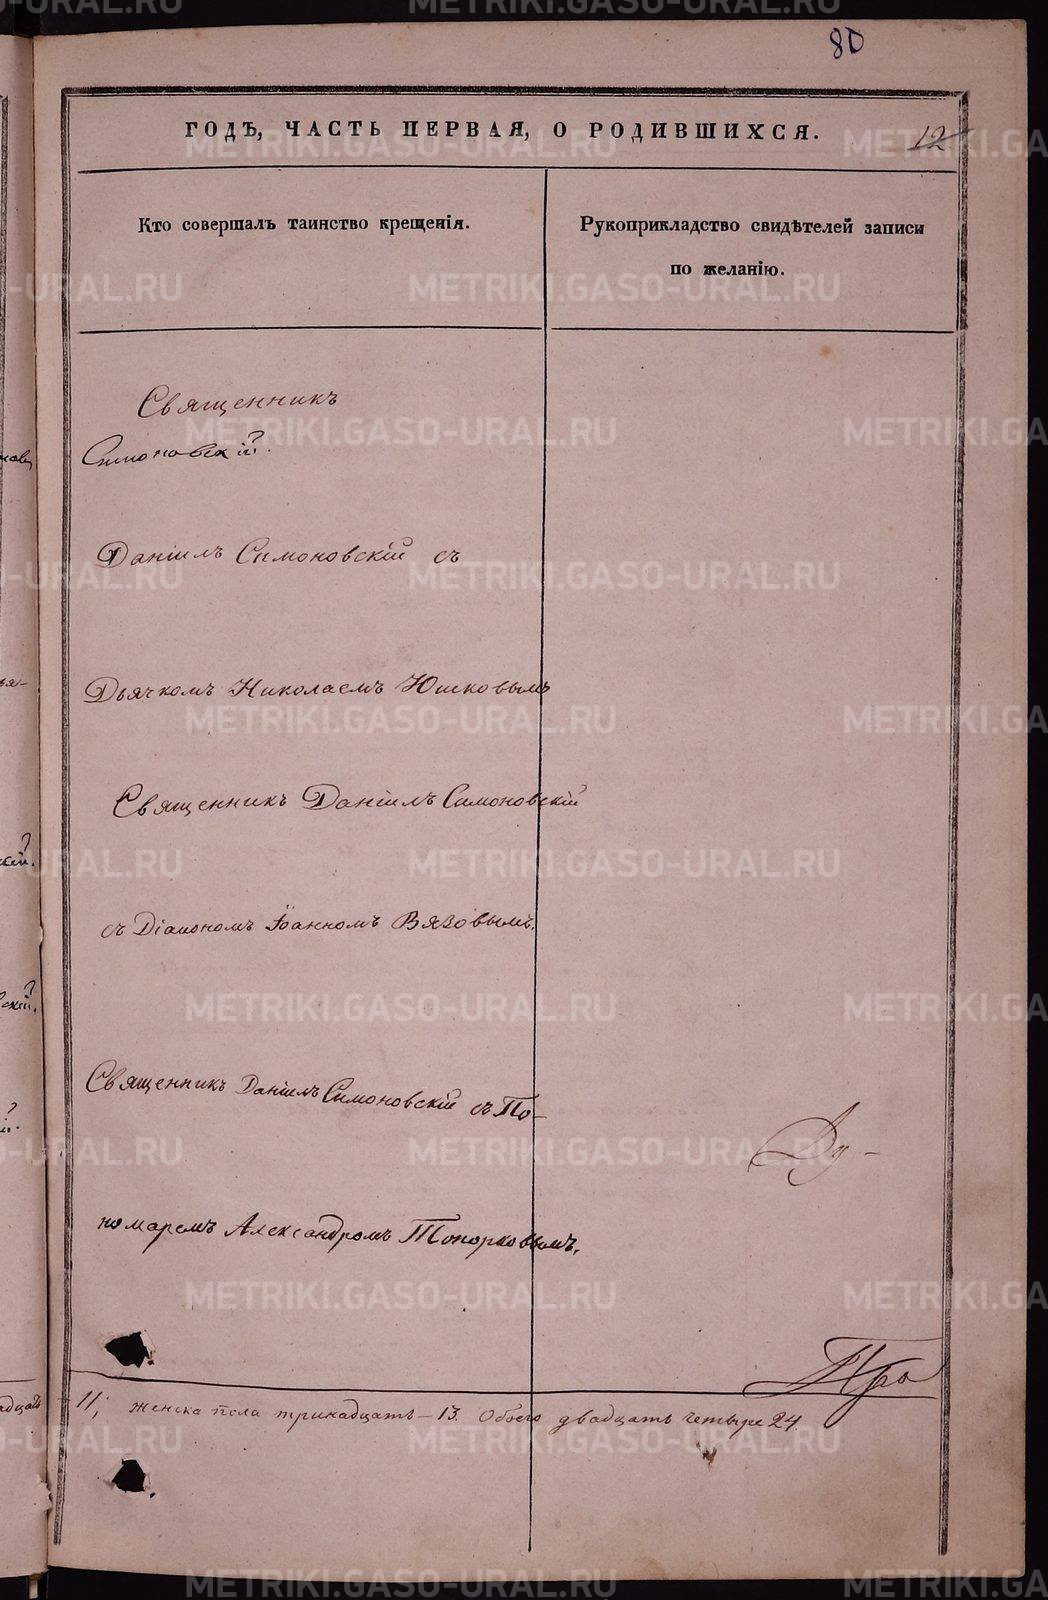 80
ГОДЪ, ЧАСТЬ ПЕРВАЯ, О РОДИВШИХСЯ.
12
Кто совершалъ таинство крещенія.
Рукоприкладство свидѣтелей записи
по желанію.
Священникъ
Симоновскій.
Даніилъ Симоновскій съ
Дьячкомъ Николаемъ Юшковымъ
Священникъ Даніилъ Симоновскій
съ Діакономъ Іоанномъ Вязовымъ.
Священникъ Даніилъ Симоновскій съ По-
номаремъ Александромъ Топорковымъ.
Ду-
Про
11; женска пола тринадцать - 13. Обоего двадцать четыре 24.
METRIKI.GASO-URAL.RU